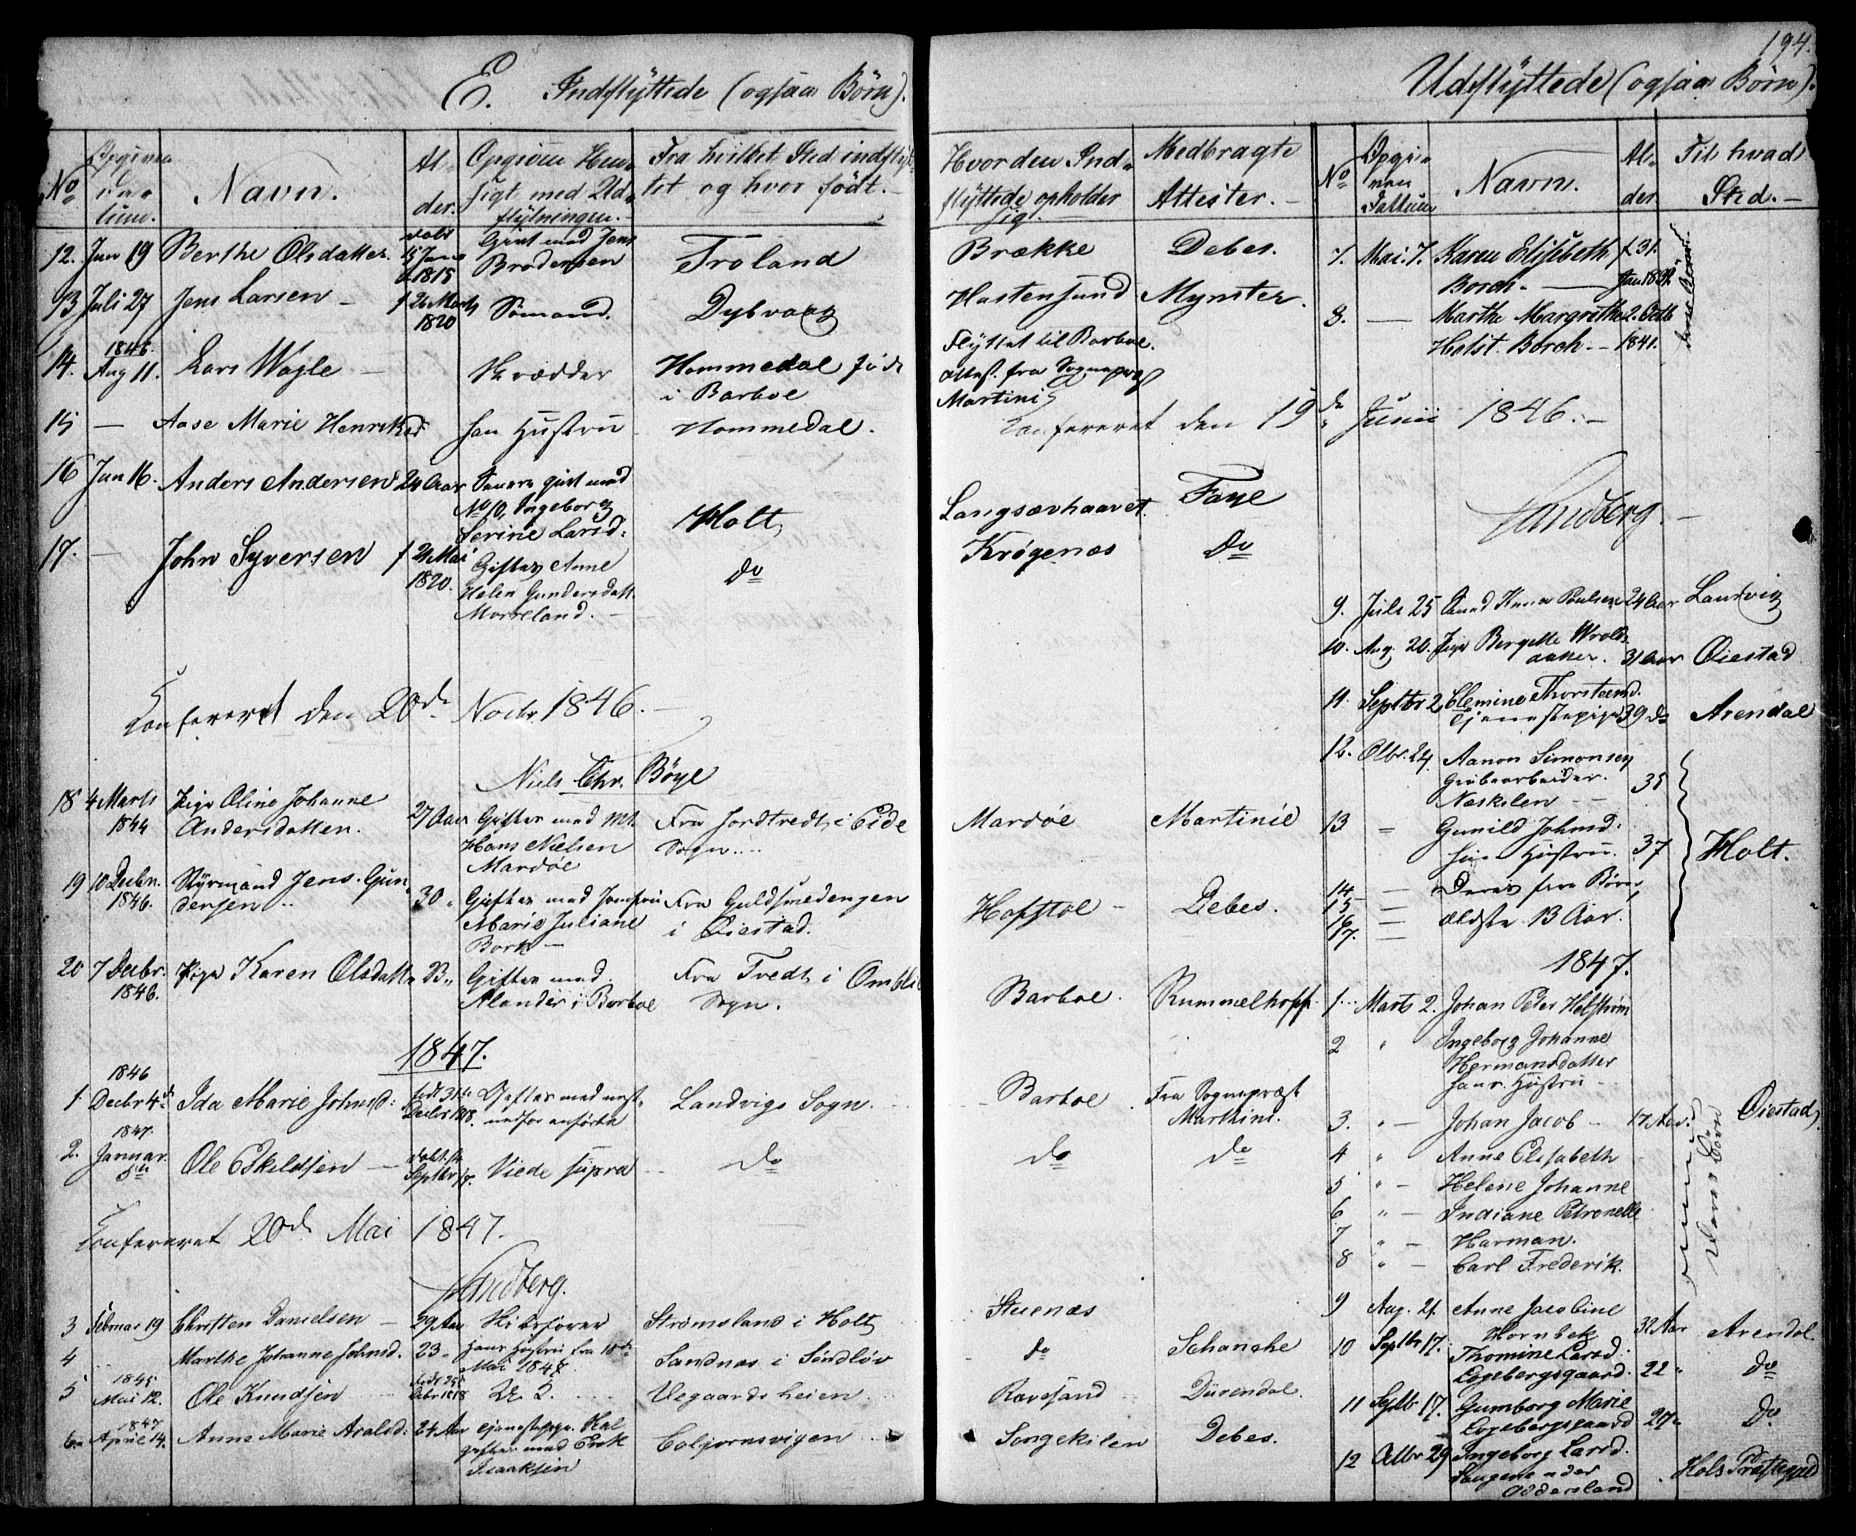 194.
E. Indflyttede (ogsaa Børn).
No
Opgiven Datum.
Navn.
Alder.
Opgiven Hensigt med Udflytningen.
Fra hvilket Sted indflyttet og hvor født.
Hvor den Indflyttede opholder sig.
Medbragte Attester.
12. Jun 19 Berthe Olsdatter døbt 15 Jun 1815 Givt med Jens Brodersen Froland Brække Debes.
13 Juli 27 Jens Larsen f 26 Marts 1820 Sømand. Dybvaag Hastensund Mynster.
14. 1846. Aug 11. Lars Wagle Skrædder Hommedal født i Barboe Flyttet til Barboe. Attest. fra Sognepræst Martini
15 Aase Marie Henriksd han Hustru Hommedal.
16 Jun 16. Anders Andersen 24 Aar givt med No 10, Ingeborg Serine Larsd: Holt, Langsævhaavet. Faye
17. John Syversen f 21 Mai 1820. Gifter Anne Helen Gundersdatt. Morreland. do Krøgenæs Do
Confereret den 20de Novbr. 1846.
Niels Chr. Bøye
18 4 Marts 1844 Pige Oline Johanne Andersdatten. 27 Aar Gifter med Mt. Hans Nielsen Mardøe Fra Jordtvedt i Eide Sogn Mardøe Martinie
19 10 Decbr. 1846. Styrmand Jens Gundersen 30 Gifter med Jomfru Marie Juliane Bork Fra Guldsmedengen i Øiestad. Hafstøl Debes.
20 7 Decbr. 1846. Pige Karen Olsdatt Gifter med Alander i Barboe Fra Tvedt i Omblie Sogn. Barboe. Rummelhoff
1847.
1 1846 Decbr 4de Ida Marie Johnsd: født 31te Decbr 1818. Gifter med næstnedfor anførte Landvigs Sogn. Barboe Fra Sognepræst Martini.
2. 1847. Januar. 5te Ole Eskildsen døbt 14 Septbr 17. Viede supra do do do
Confereret 20de Mai 1847.
Sandberg.
3 Februar 19 Christen Danielsen 29 Aar Strømsland i Holt Stuenæs
4 Marthe Johanne Johnsd. 23 hans Hustru fra 10de Mai 1847 Sandnæs i Søndløv do Schanche
5 1845 Mai 12. Ole Knudsen Uegaardsheien Ravesand Dürendal.
6 1847 April 14. Anne Marie Aralsd: 24 Aar Tjenestepige. Skal gifter med Erik Isaaksen Coljørnsvigen Songekilen Debes.
Udflyttede (ogsaa Børn).
No
Opgiven Datum
Navn.
Alder.
Til hvad Sted.
7. Mai. 7. Karen Elisebeth Borch. f 31. Jan 1839.
8. Marthe Margrethe Holst Borch 2. Octb 1841.
Confereret den 19de Junii 1846.
Sandberg.
9. Juli 25 Knud Knudsen Poulsen 24 Aar Landvig
10. Aug. 20. Pige Bergette Wroldsdatter. 31 Aar Øiestad
11. Septbr 2 Elemine Thorsteensd. Tjenestepige 39 do Arendal
12. Octbr. 24. Aanon Simonsen Grubearbeider. Næskilen 35
13 Gunild Johnsd: hans Hustru. 37 Holt.
14
15
16
17. Deres fire Børn, ældste 13 Aar.
1847.
1 Marts 2. Johan Peter Helstrøm
2 Ingeborg Johanne Hermansdatter hans Hustru
3. Johan Jacob 17 Aar Øiestad
4 Anne Elisabeth
5 Helene Johanne
6 Indiane Petronelle
7 Harman.
8 Carl Frederik.
deres Børn
9 Aug. 21. Anne Jacobine Hornbek 32 Aar Arendal
10 Septbr 17. Thomine Larsd. Logebergsgaard. 22 do
11 Septbr 17. Gumborg Marie Logebergsgaard 27 do
12 Octbr 29 Ingeborg Larsd. Oddersland Hols Præstegjæld